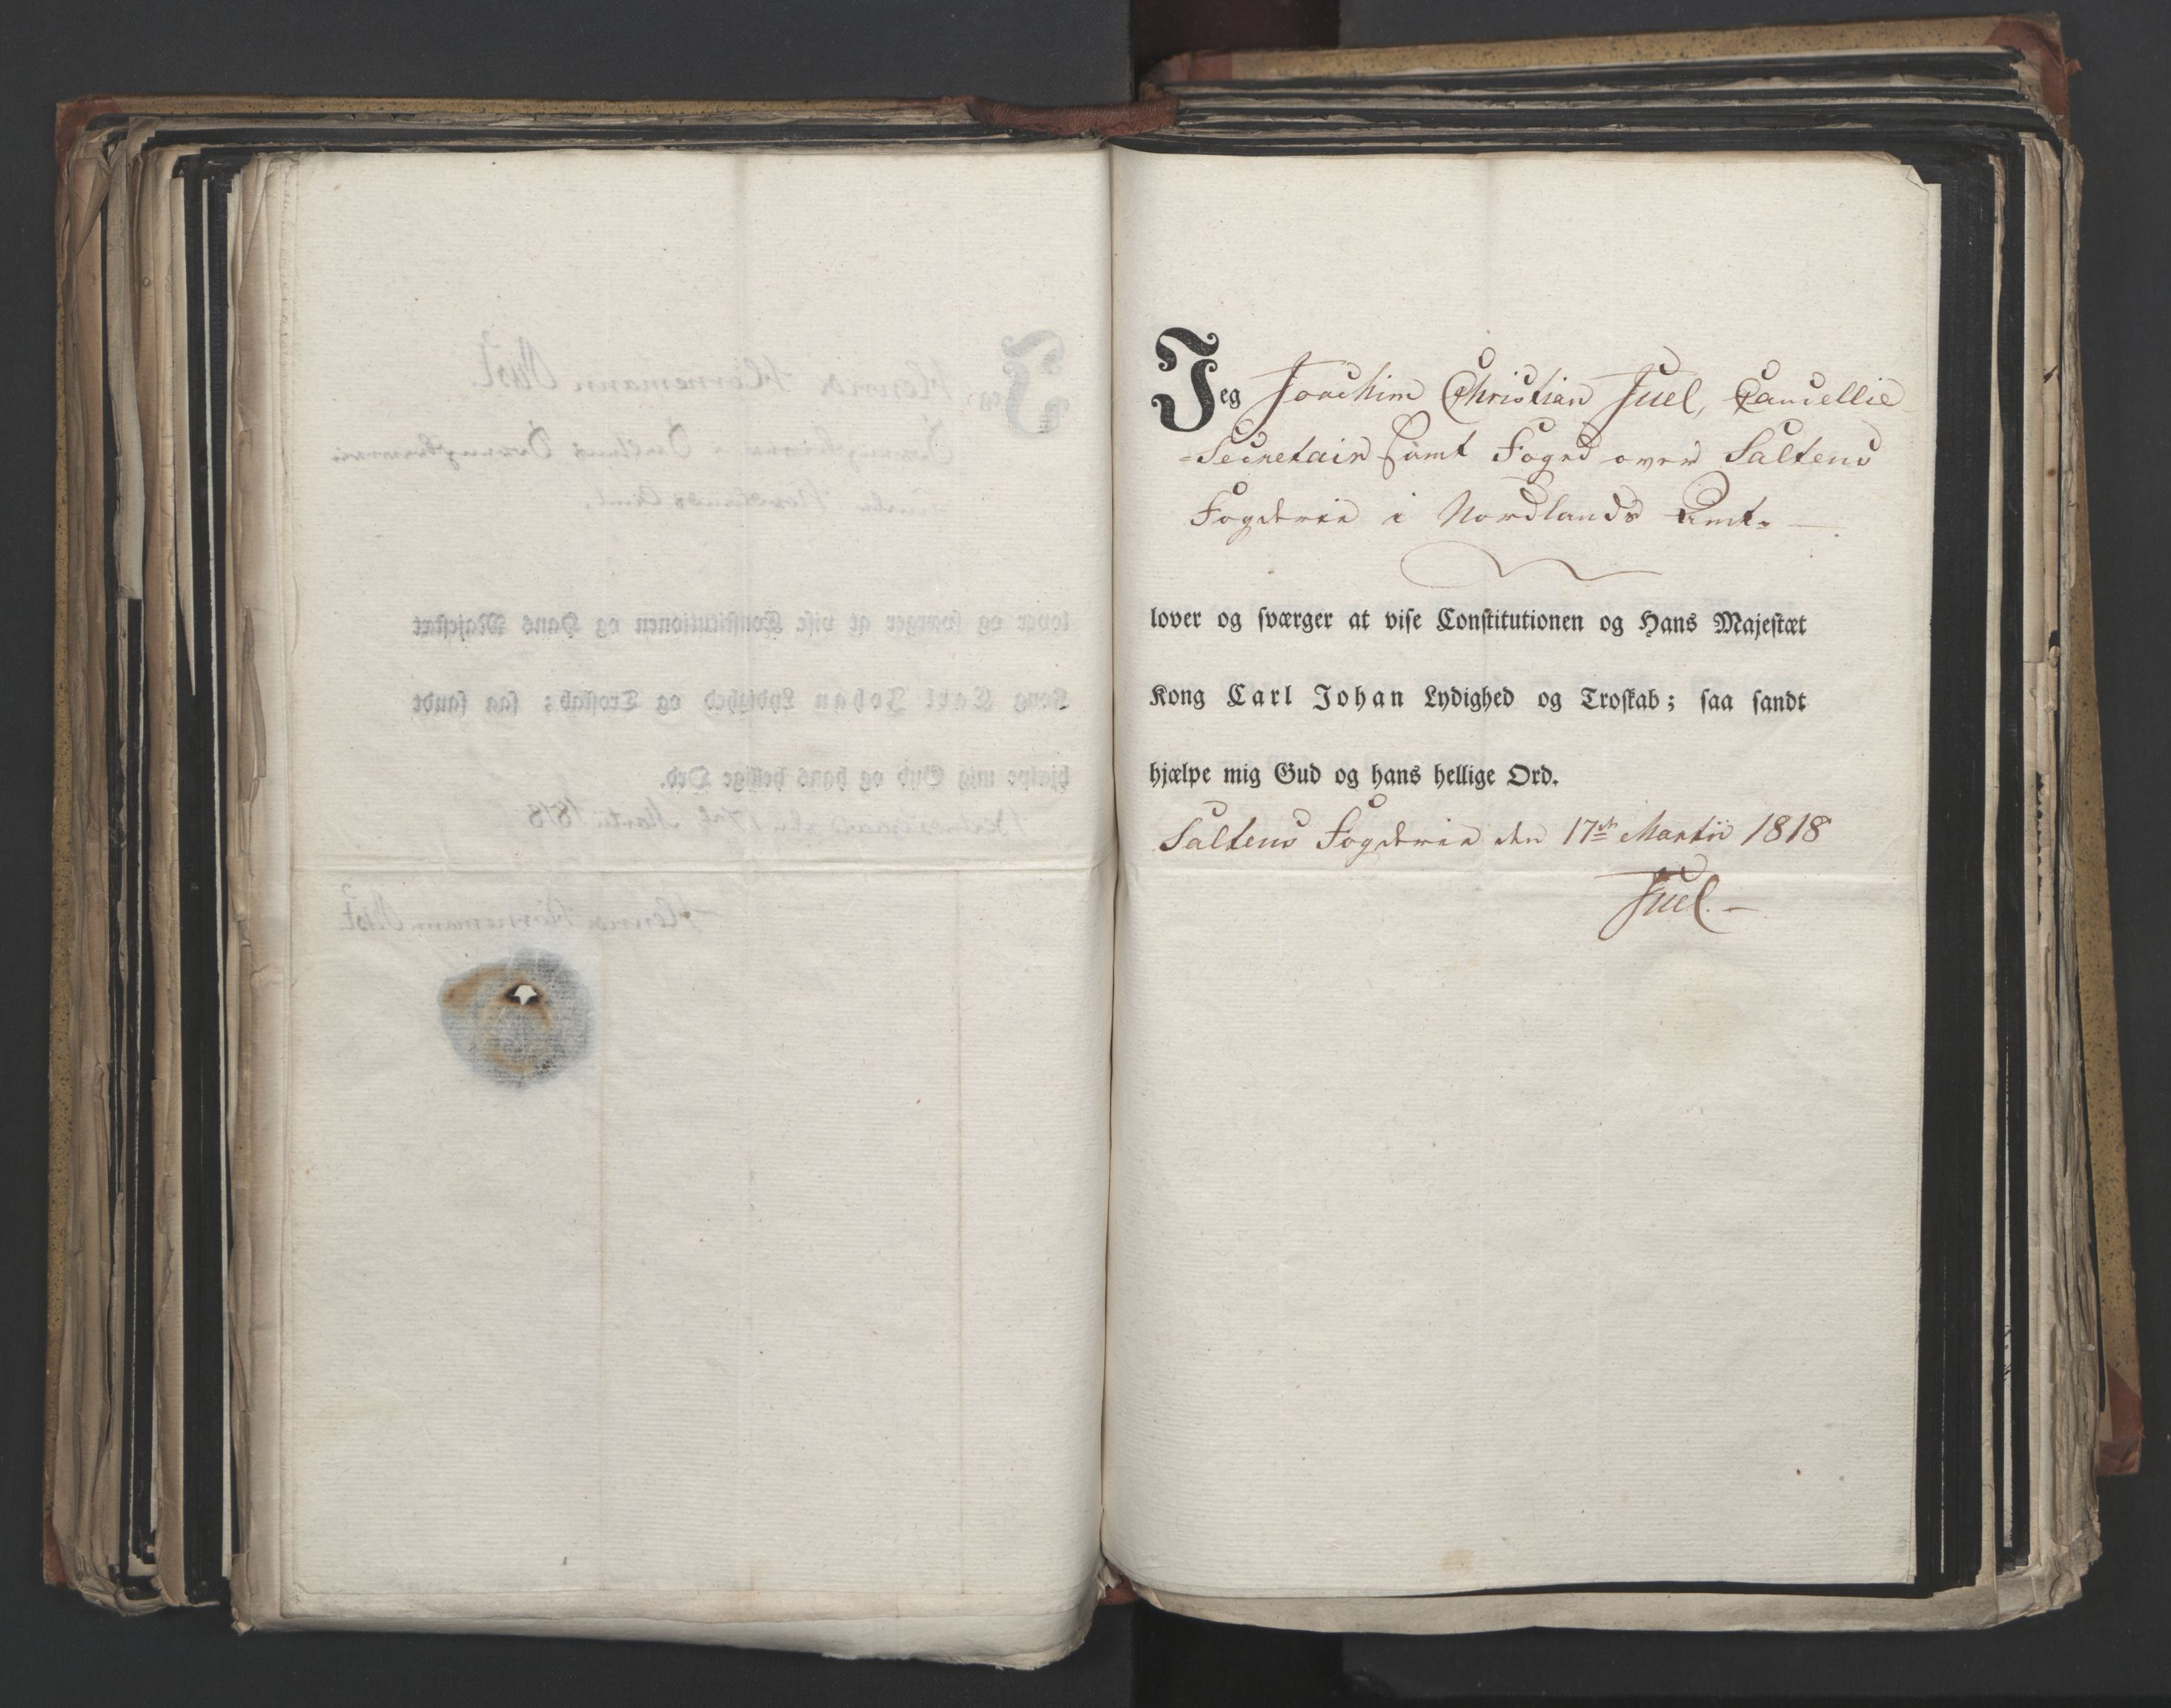 Jeg Joachim Christian Juel, Cancellie
-Secretair samt Foged over Saltens
Fogderie i Nordlands Amt. —
lover og sværger at vise Constitutionen og Hans Majestæt
Kong Carl Johan Lydighed og Troskab; saa sandt
hjælpe mig Gud og hans hellige Ord.
Saltens Fogderie den 17de Martii 1818
Juel. —